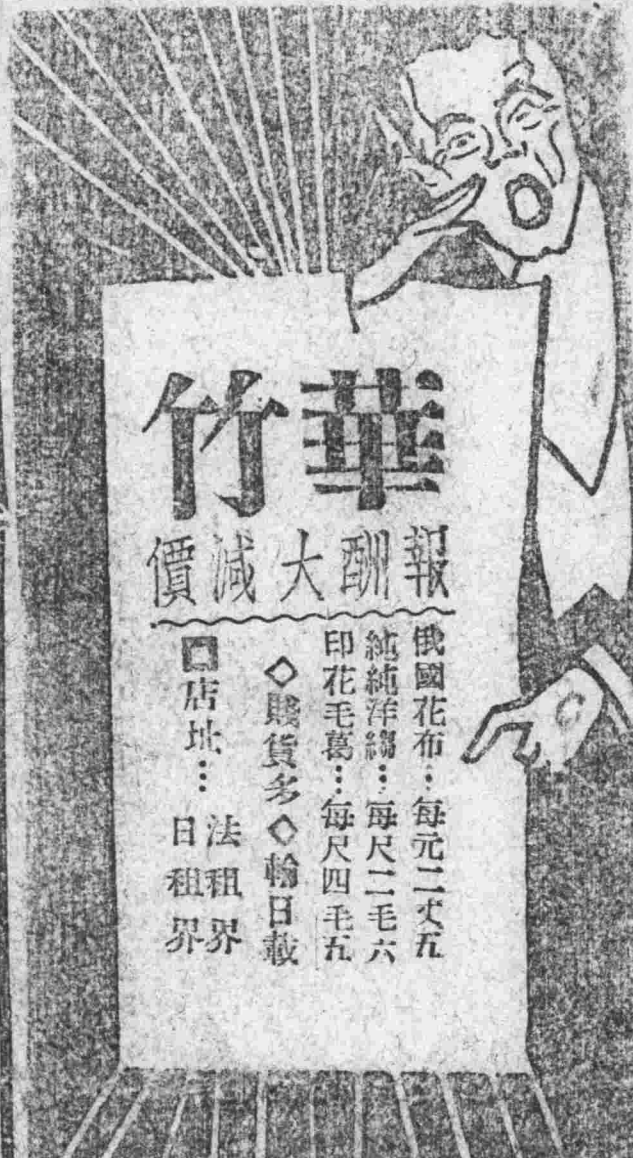 華竹
報酬大減價
俄國花布⋯每元二丈五
純純洋縐⋯每尺二毛六
印花毛葛⋯每尺四毛五
◇賤貨多◇輪日載
店址⋯法租界
日租界